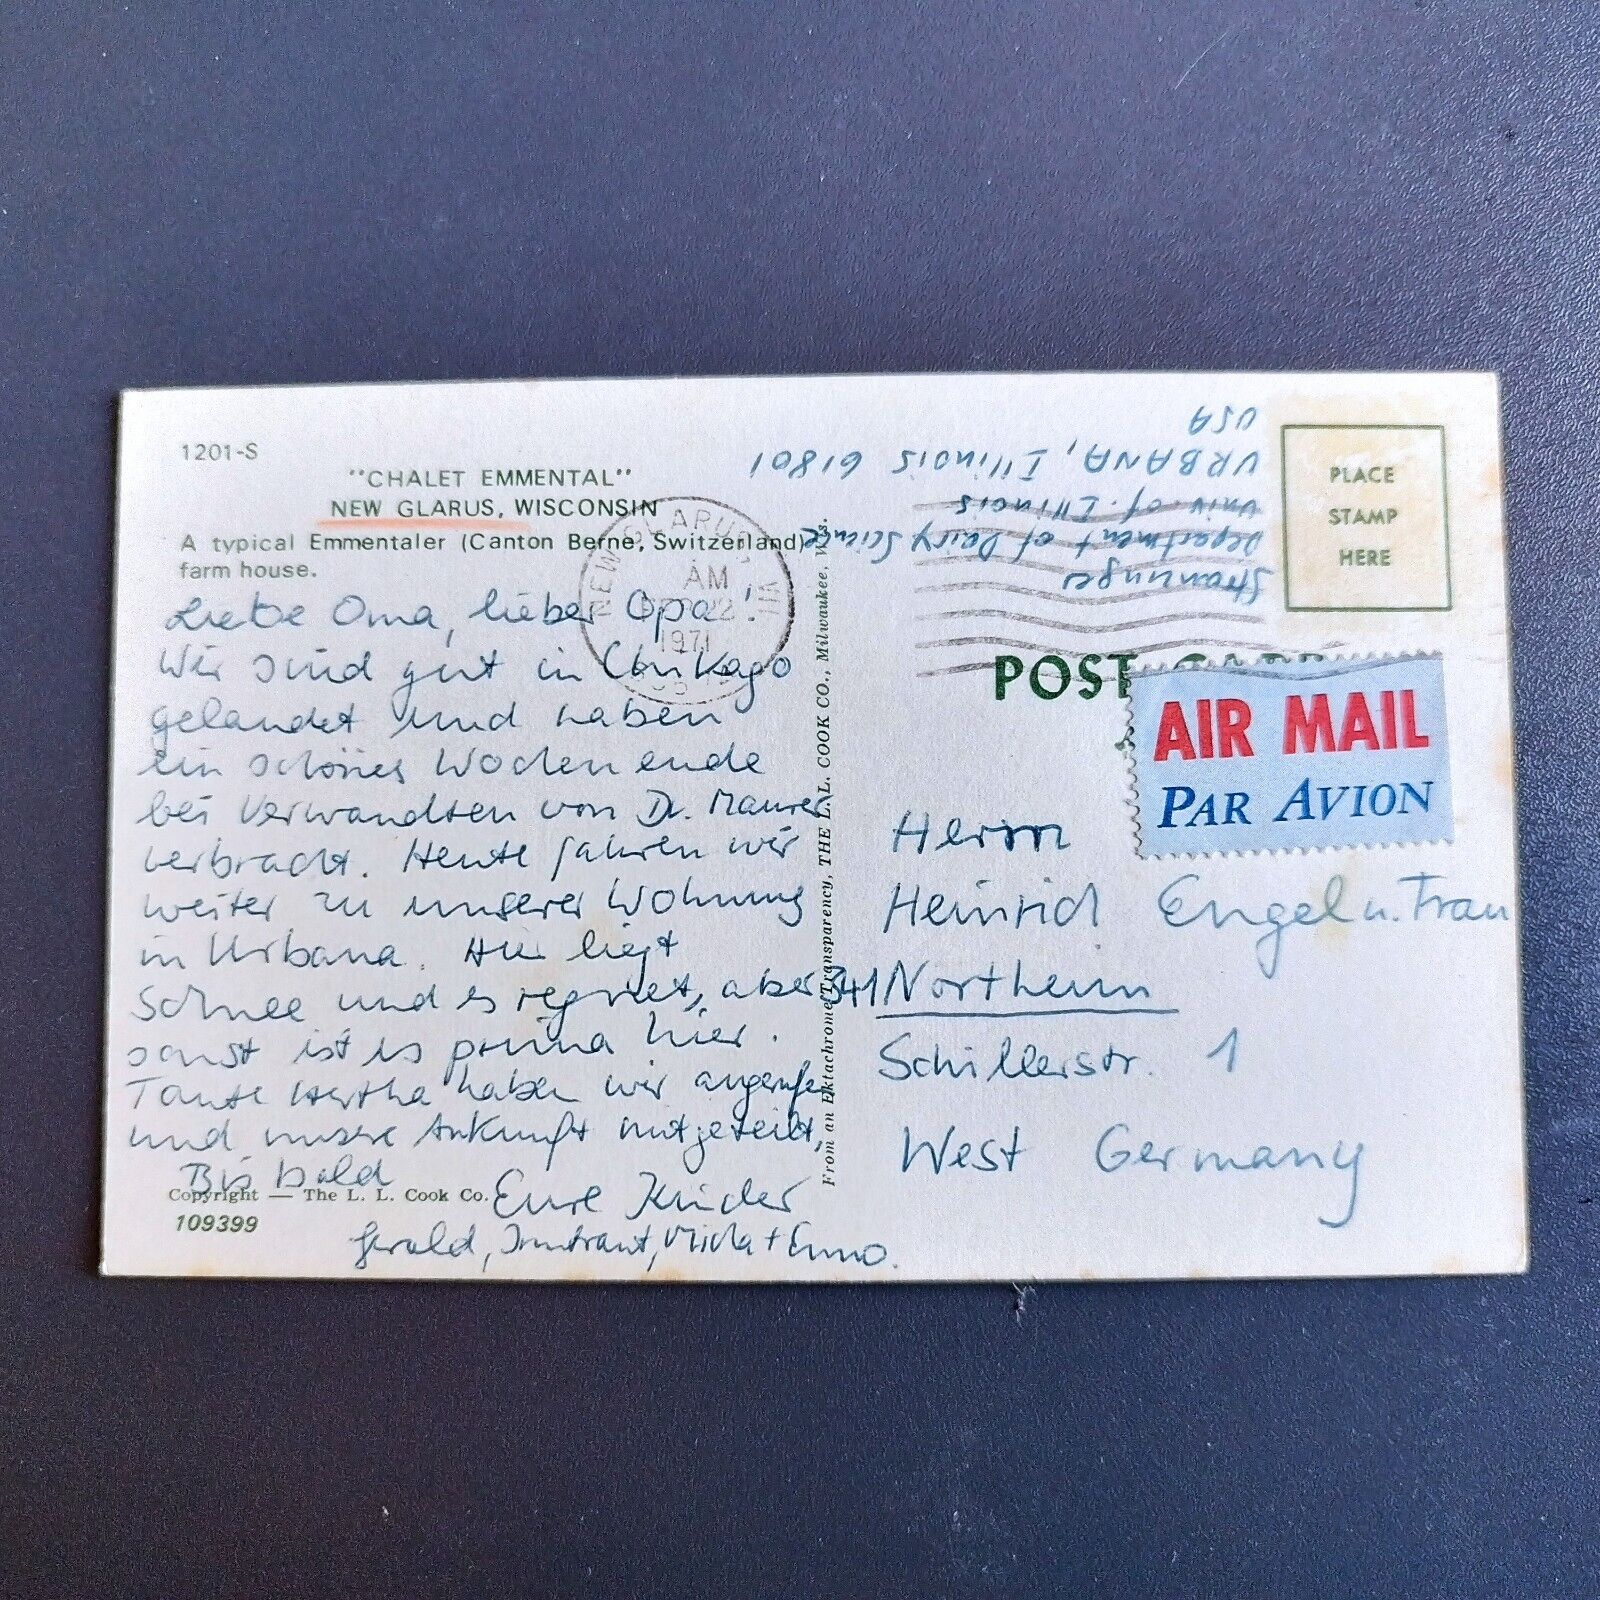 1201-S
"CHALET EMMENTAL"
NEW GLARUS, WISCONSIN
A typical Emmentaler (Canton Berne, Switzerland)
farm house.
Liebe Oma, lieber Opa!
Wir sind gut in Chikago
gelandet und haben
ein schönes Wochenende
bei Verwandten von Dr. Maurer
verbracht. Heute fahren wir
weiter zu unserer Wohnung
in Urbana. Hier liegt
Schnee und es regnet, aber
sonst ist es prima hier.
Tante Hertha haben wir angerufen
und unsere Ankunft mitgeteilt,
Bis bald
Eure Kinder
Gerald, Irmtraut, + Enno.
Copyright — The L. L. Cook Co.
109399
NEW GLARUS, WI
AM
22
1971
From an Ektachrome Transparency, THE L. L. COOK CO., Milwaukee, Wis.
Department of Dairy Science
Univ. of. Illinois
URBANA, Illinois 61801
USA
PLACE
STAMP
HERE
POST CARD
AIR MAIL
PAR AVION
Herrn
Heinrich Engel u. Frau
341 Northeim
Schillerstr. 1
West Germany